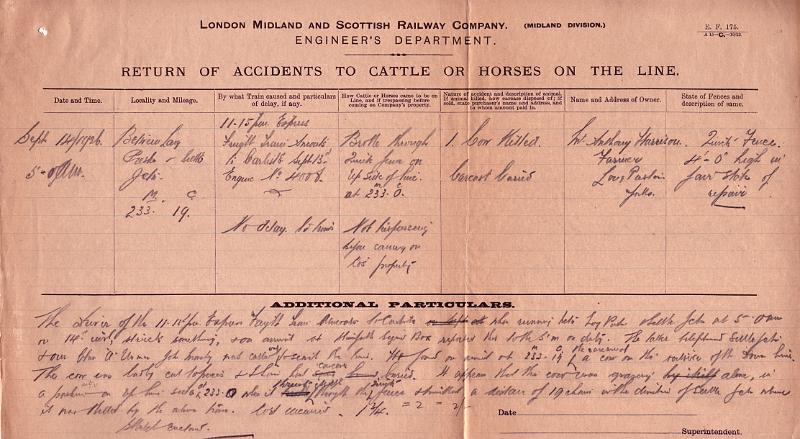 LONDON MIDLAND AND SCOTTISH RAILWAY COMPANY. (MIDLAND DIVISION.)
E. F. 175.
ENGINEER'S DEPARTMENT.
RETURN OF ACCIDENTS TO CATTLE OR HORSES ON THE LINE.
Date and Time.
Locality and Mileage.
By what Train caused and particulars
of delay, if any.
How Cattle or Horses came to be on
Line, and if trespassing before
coming on Company's property.
Nature of accident and description of animal,
if animal killed, how carcase disposed of; if
sold, state purchaser's name and address, and
to whom amount paid in.
Name and Address of Owner.
State of Fences and
description of same.
Sept 14/1926
5-0 AM.
Between Long
Preston & Settle
Jctn.
M C
233. 19.
11-15 pm Express
Freight Train
to Carlisle Sept 13th
Engine No 4008
No delay to trains
Broke through
Quick fence on
Up side of line
at 233. 0.
Not trespassing
before coming on
Co's property
1. Cow Killed.
Carcass buried
Mr Anthony Harrison
Farmer
Long Preston
Yorks.
Quick Fence
4'-0" high in
fair state of
repair
ADDITIONAL PARTICULARS.
The driver of the 11-15 pm Express Freight Train to Carlisle when running between Long Preston & Settle Jctn at 5-0 am
on 14 struck something, & on arrival at Signal Box reported this to the S'man on duty. The latter telephoned Settle Jctn
The cow was badly cut to pieces & buried. It appears that the cow was grazing alone, in
a on Up line side at 233.0 when it through the fence & a distance of 19 chains in the direction of Settle Jctn where
it was killed by the above train. Cost incurred
Date
Superintendent.